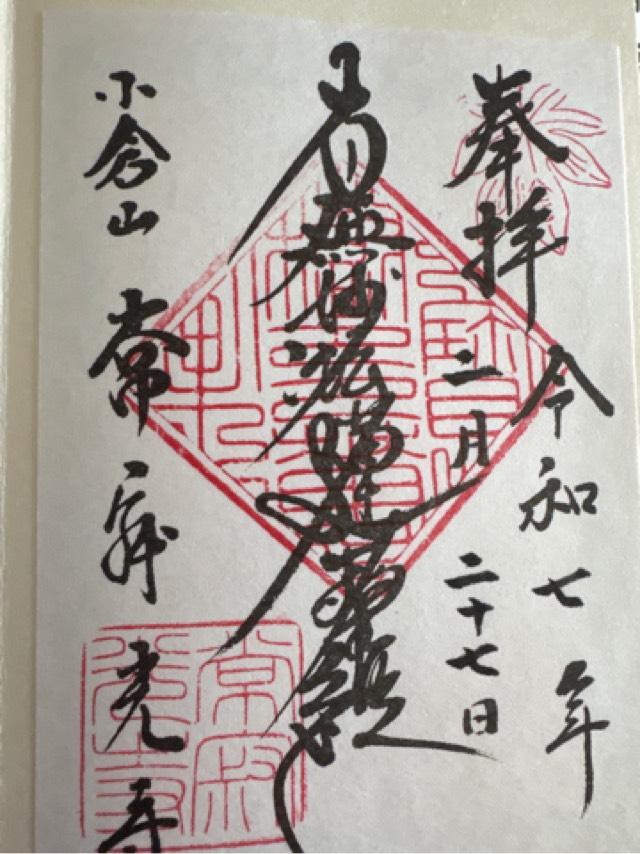 奉拝
令和七年
二月二十七日
南無妙法蓮華経
小倉山 常寂光寺